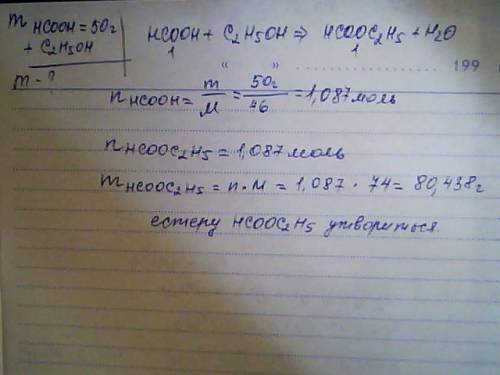 m HCOOH = 50г
+ C₂H₅OH
m - ?
HCOOH + C₂H₅OH ⇒ HCOOC₂H₅ + H₂O
1 1
« » 199
n HCOOH = m/M = 50г/46 = 1,087 моль
n HCOOC₂H₅ = 1,087 моль
m HCOOC₂H₅ = n·M = 1,087 · 74 = 80,438г
естеру HCOOC₂H₅ утвориться.